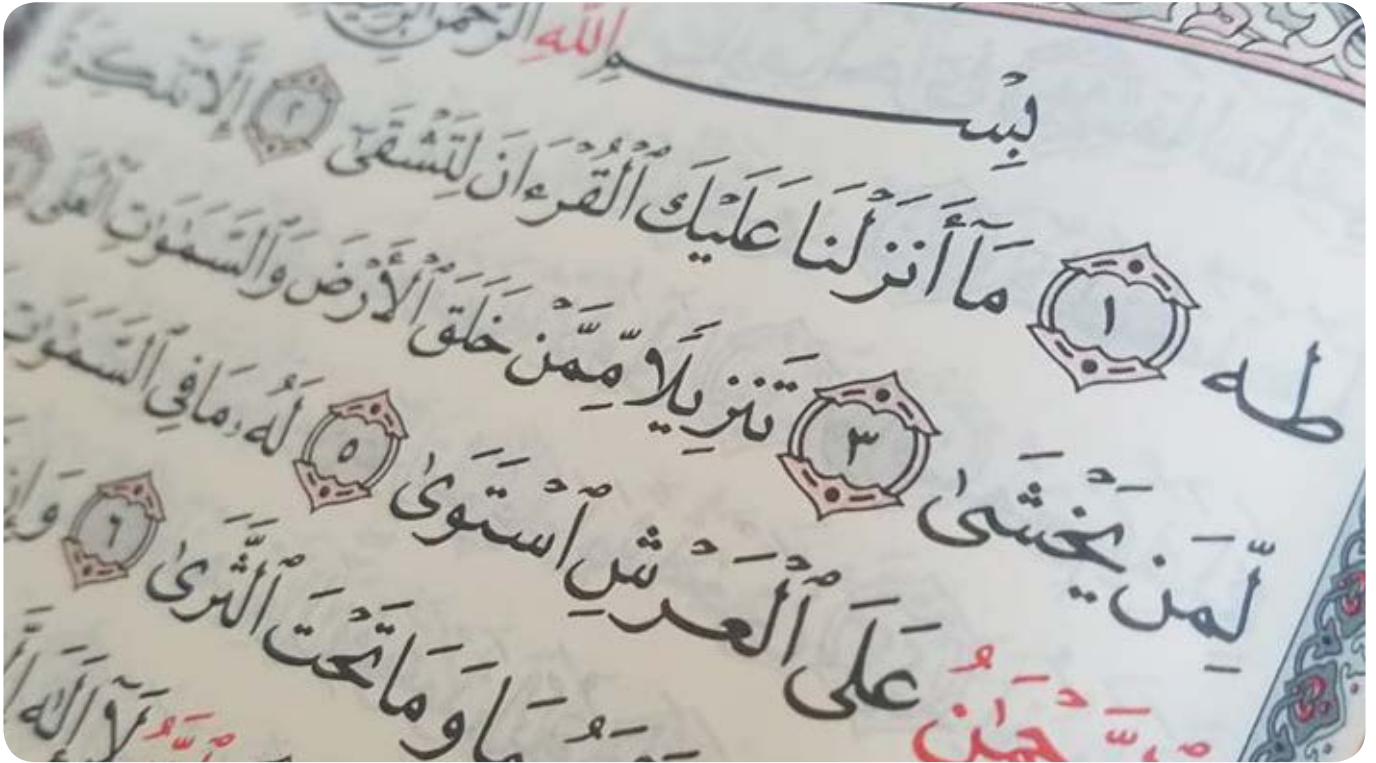 بِسْمِ اللَّهِ الرَّحْمَٰنِ
طه ١ مَآ أَنزَلْنَا عَلَيْكَ ٱلْقُرْءَانَ لِتَشْقَىٰٓ ٢ إِلَّا تَذْكِرَةً
لِّمَن يَخْشَىٰ ٣ تَنزِيلًا مِّمَّنْ خَلَقَ ٱلْأَرْضَ وَٱلسَّمَٰوَٰتِ ٱلْعُلَى
عَلَى ٱلْعَرْشِ ٱسْتَوَىٰ ٥ لَهُۥ مَا فِي ٱلسَّمَٰوَٰتِ
وَمَا تَحْتَ ٱلثَّرَىٰ ٦
لَآ إِلَٰهَ